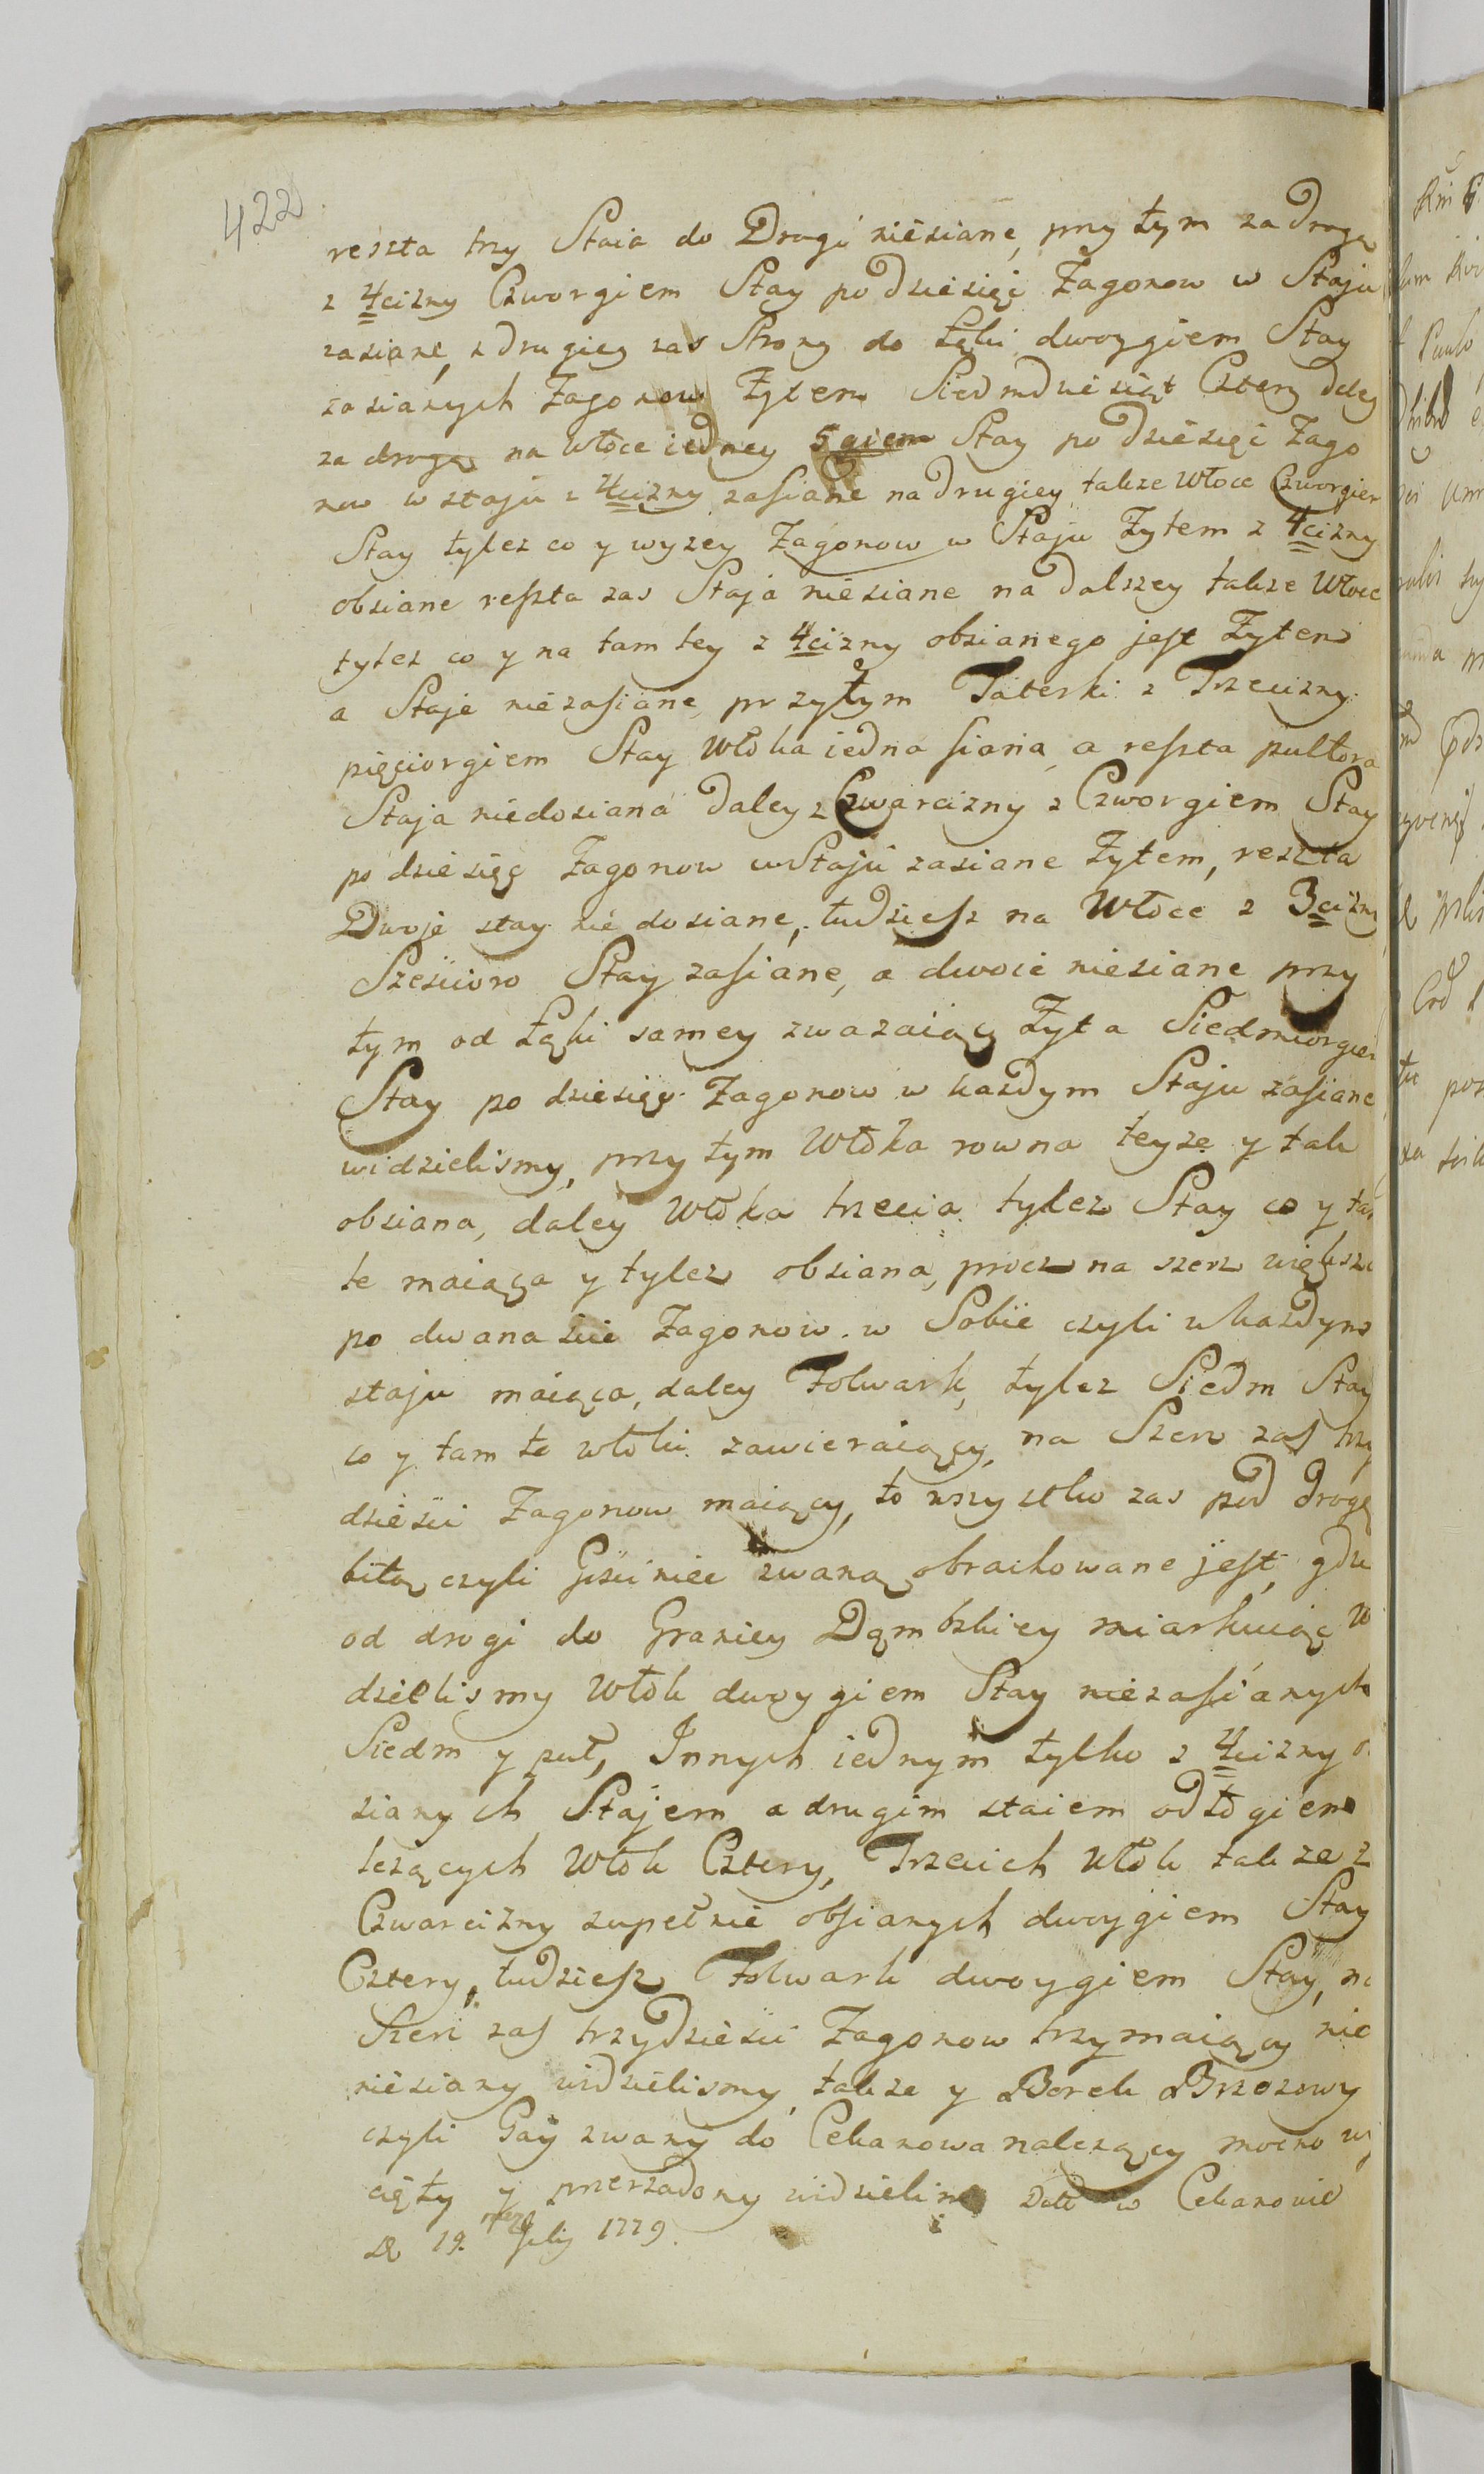 422
reszta trzy Staia do Drogi niesiane, przy tym za Drogą
z 4cizny Czworgiem Stay po dziesięć Zagonow w Staju
zasiane, z drugiey zas Strony do Łąki dwoygiem Stay
zasianych Zagonow Zytem Siedmdziesiąt Cztery daley
za drogą na Włoce iedney 5giem Stay po dziesięć Zago
now w staju z 4cizny zasiane na drugiey takze Włoce Czworgiem
Stay tylez co y wyzey Zagonow w Staju Zytem z 4cizny
obsiane reszta zas Staja niesiane na dalszey takze Włoce
tylez co y na tam tey z 4cizny obsianego jest Zytem
a Staje niezasiane, przytym Taterki z Trzecizny
pięciorgiem Stay Włoka iedna siana, a reszta pułtora
Staja niedosiana daley z Czwarcizny z Czworgiem Stay
po dziesięć Zagonow w Staju zasiane Zytem, reszta
Dwoje stay nie dosiane, tudziesz na Włoce z 3cizny
Sześcioro Stay zasiane, a dwoie niesiane przy
tym od Łąki samey zwazaiąc Zyta Siedmiorgiem
Stay po dziesięć Zagonow w kazdym Staju zasiane
widzielismy, przy tym Włoka rowna teyze y tak
obsiana, daley Włoka trzecia tylez Stay co y tam
te maiąca y tylez obsiana, procz na szerz większa
po dwanascie Zagonow w Sobie czyli w kazdym
staju maiąca, daley Folwark, tylez Siedm Stay
co y tam te włoki zawieraiący, na Szerz zas trzy
dziesci Zagonow maiący, to wszystko zas pod drogę
bitą czyli Gosciniec zwaną obrachowane jest, gdzie
od drogi do Granicy Dąmbskiey miarkuiąc wi
dzielismy Włok dwoygiem Stay niezasianych
Siedm y puł, Innych iednym tylko z 4cizny o
sianych Stajem a drugim staiem odłogiem
lezących Włok Cztery, Trzecich Włok takze z
Czwarcizny zupełnie obsianych dwoygiem Stay
Cztery, tudziesz Folwark dwoygiem Stay, na
Szerz zas trzydziesci Zagonow trzymaiący nie
niesiany widzielismy, takze y Borek Brzozowy
czyli Gay zwany do Cekanowa nalezący mocno wy
cięty y przerzadony widzielim Datt w Cekanowie
19. July 1779.